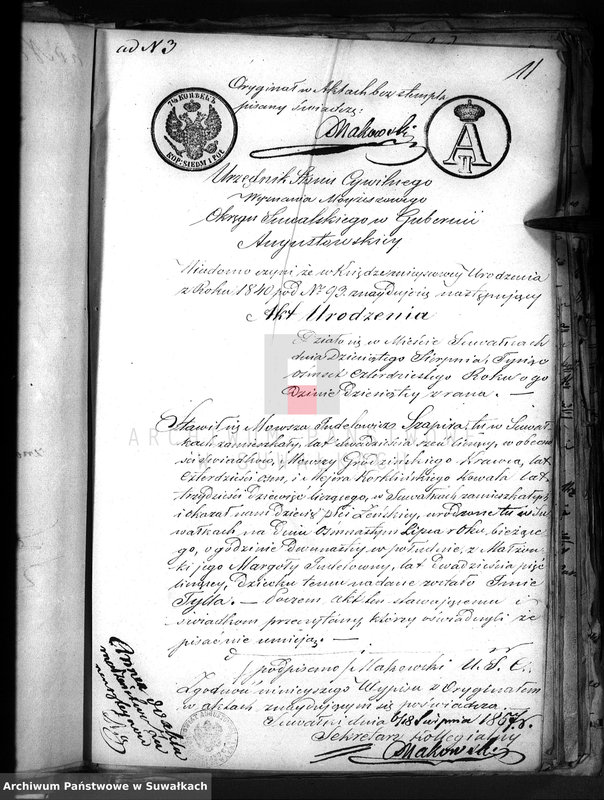 ad N 3
11
Oryginał w Aktach bez stempla
pisany świadczę:
Makowski
7½ КОПѢЕКЪ
KOP. SIEDM I PÓŁ
Urzędnik Stanu Cywilnego
Wyznania Moyżeszowego
Okręgu Suwalskiego w Gubernii
Augustowskiey
Wiadomo czyni że w Księdze Urodzenia
z Roku 1840 pod Nº 93 znayduie się następuiący
Akt Urodzenia
Działo się w Mieście Suwałkach
dnia Dziesiątego Sierpnia Tysiąc
ośmset czterdziestego Roku o go
dzinie Dziesiątey z rana. —
Stawił się Mowsza Judelowicz Szapira, tu w Suwał
kach zamieszkały, lat dwadzieścia sześć liczący, w obecno
ści świadków, Mowszy Grodzińskiego Krawca, lat
czterdzieści ośm, i Mejera Kowala lat
trzydzieści dziewięć liczącego, w Suwałkach zamieszkałych
i okazał nam dziecię płci żeńskiey, urodzone tu w Su
wałkach na dniu osmnastym Lipca roku bieżące
go, o godzinie dwunastey w południe, z Małżon
ki jego Margoły Judelowny, lat dwadzieścia pięć
liczącey, Dziecku temu nadane zostało Imie
Tylla. — Poczem akt ten stawaiącemu i
świadkom przeczytany, którzy oświadczyli że
pisać nie umieią. —
/ podpisano / Makowski U. S. C.
Zgodność ninieyszego Wypisu z Oryginałem
w aktach znayduiącym się poświadcza.
Suwałki dnia 6/18 Sierpnia 1857 r.
Sekretarz Kollegialny
Makowski
Annex do aktu
małżeństwa
ARCHIWUM PAŃSTWOWE
W SUWAŁKACH
Archiwum Państwowe w Suwałkach